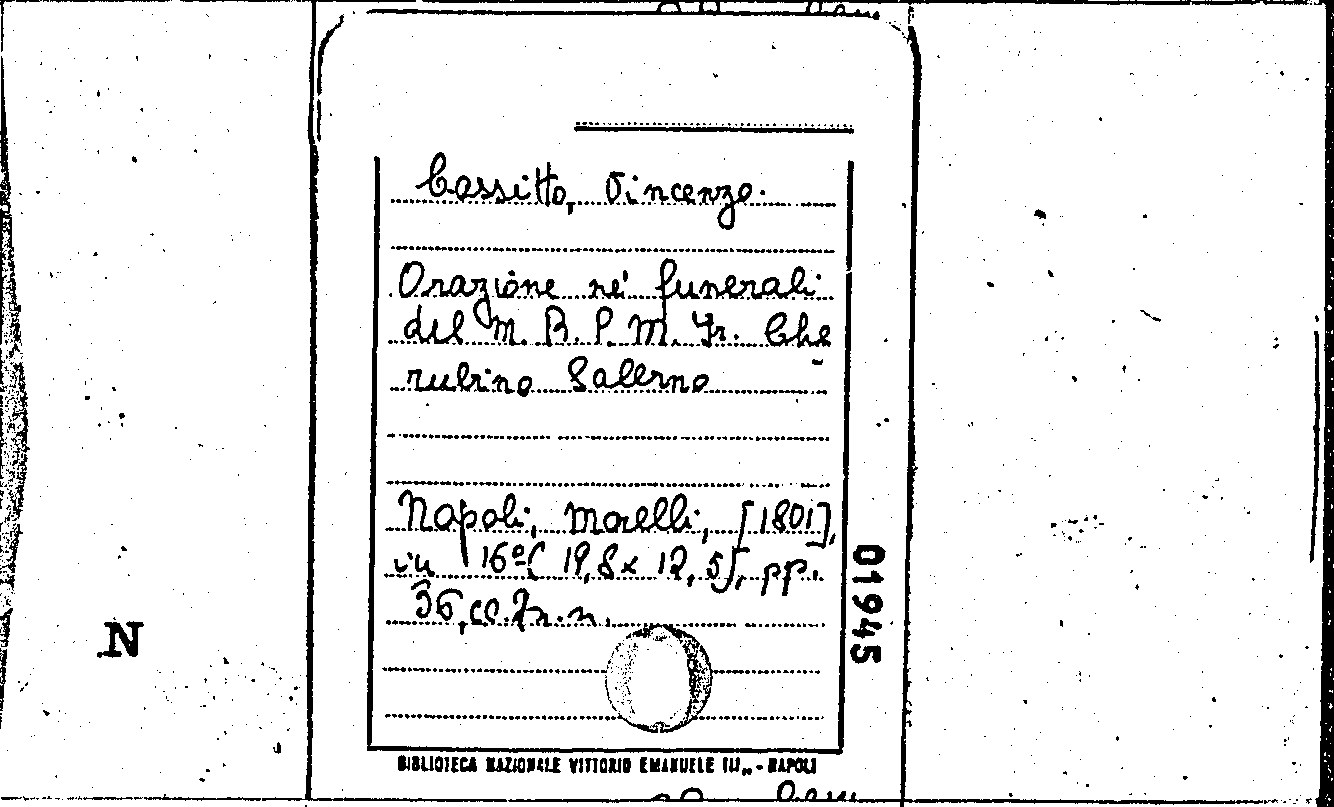 Cassitto, Vincenzo.
Orazione ne' funerali
del M. R. P. M. Fr. Che
rubino Salerno
Napoli, Morelli, [1801],
in 16º( 19,8x 12,5), pp.
36, cc. 2 n.n.
01945
N
BIBLIOTECA NAZIONALE VITTORIO EMANUELE III„ - NAPOLI